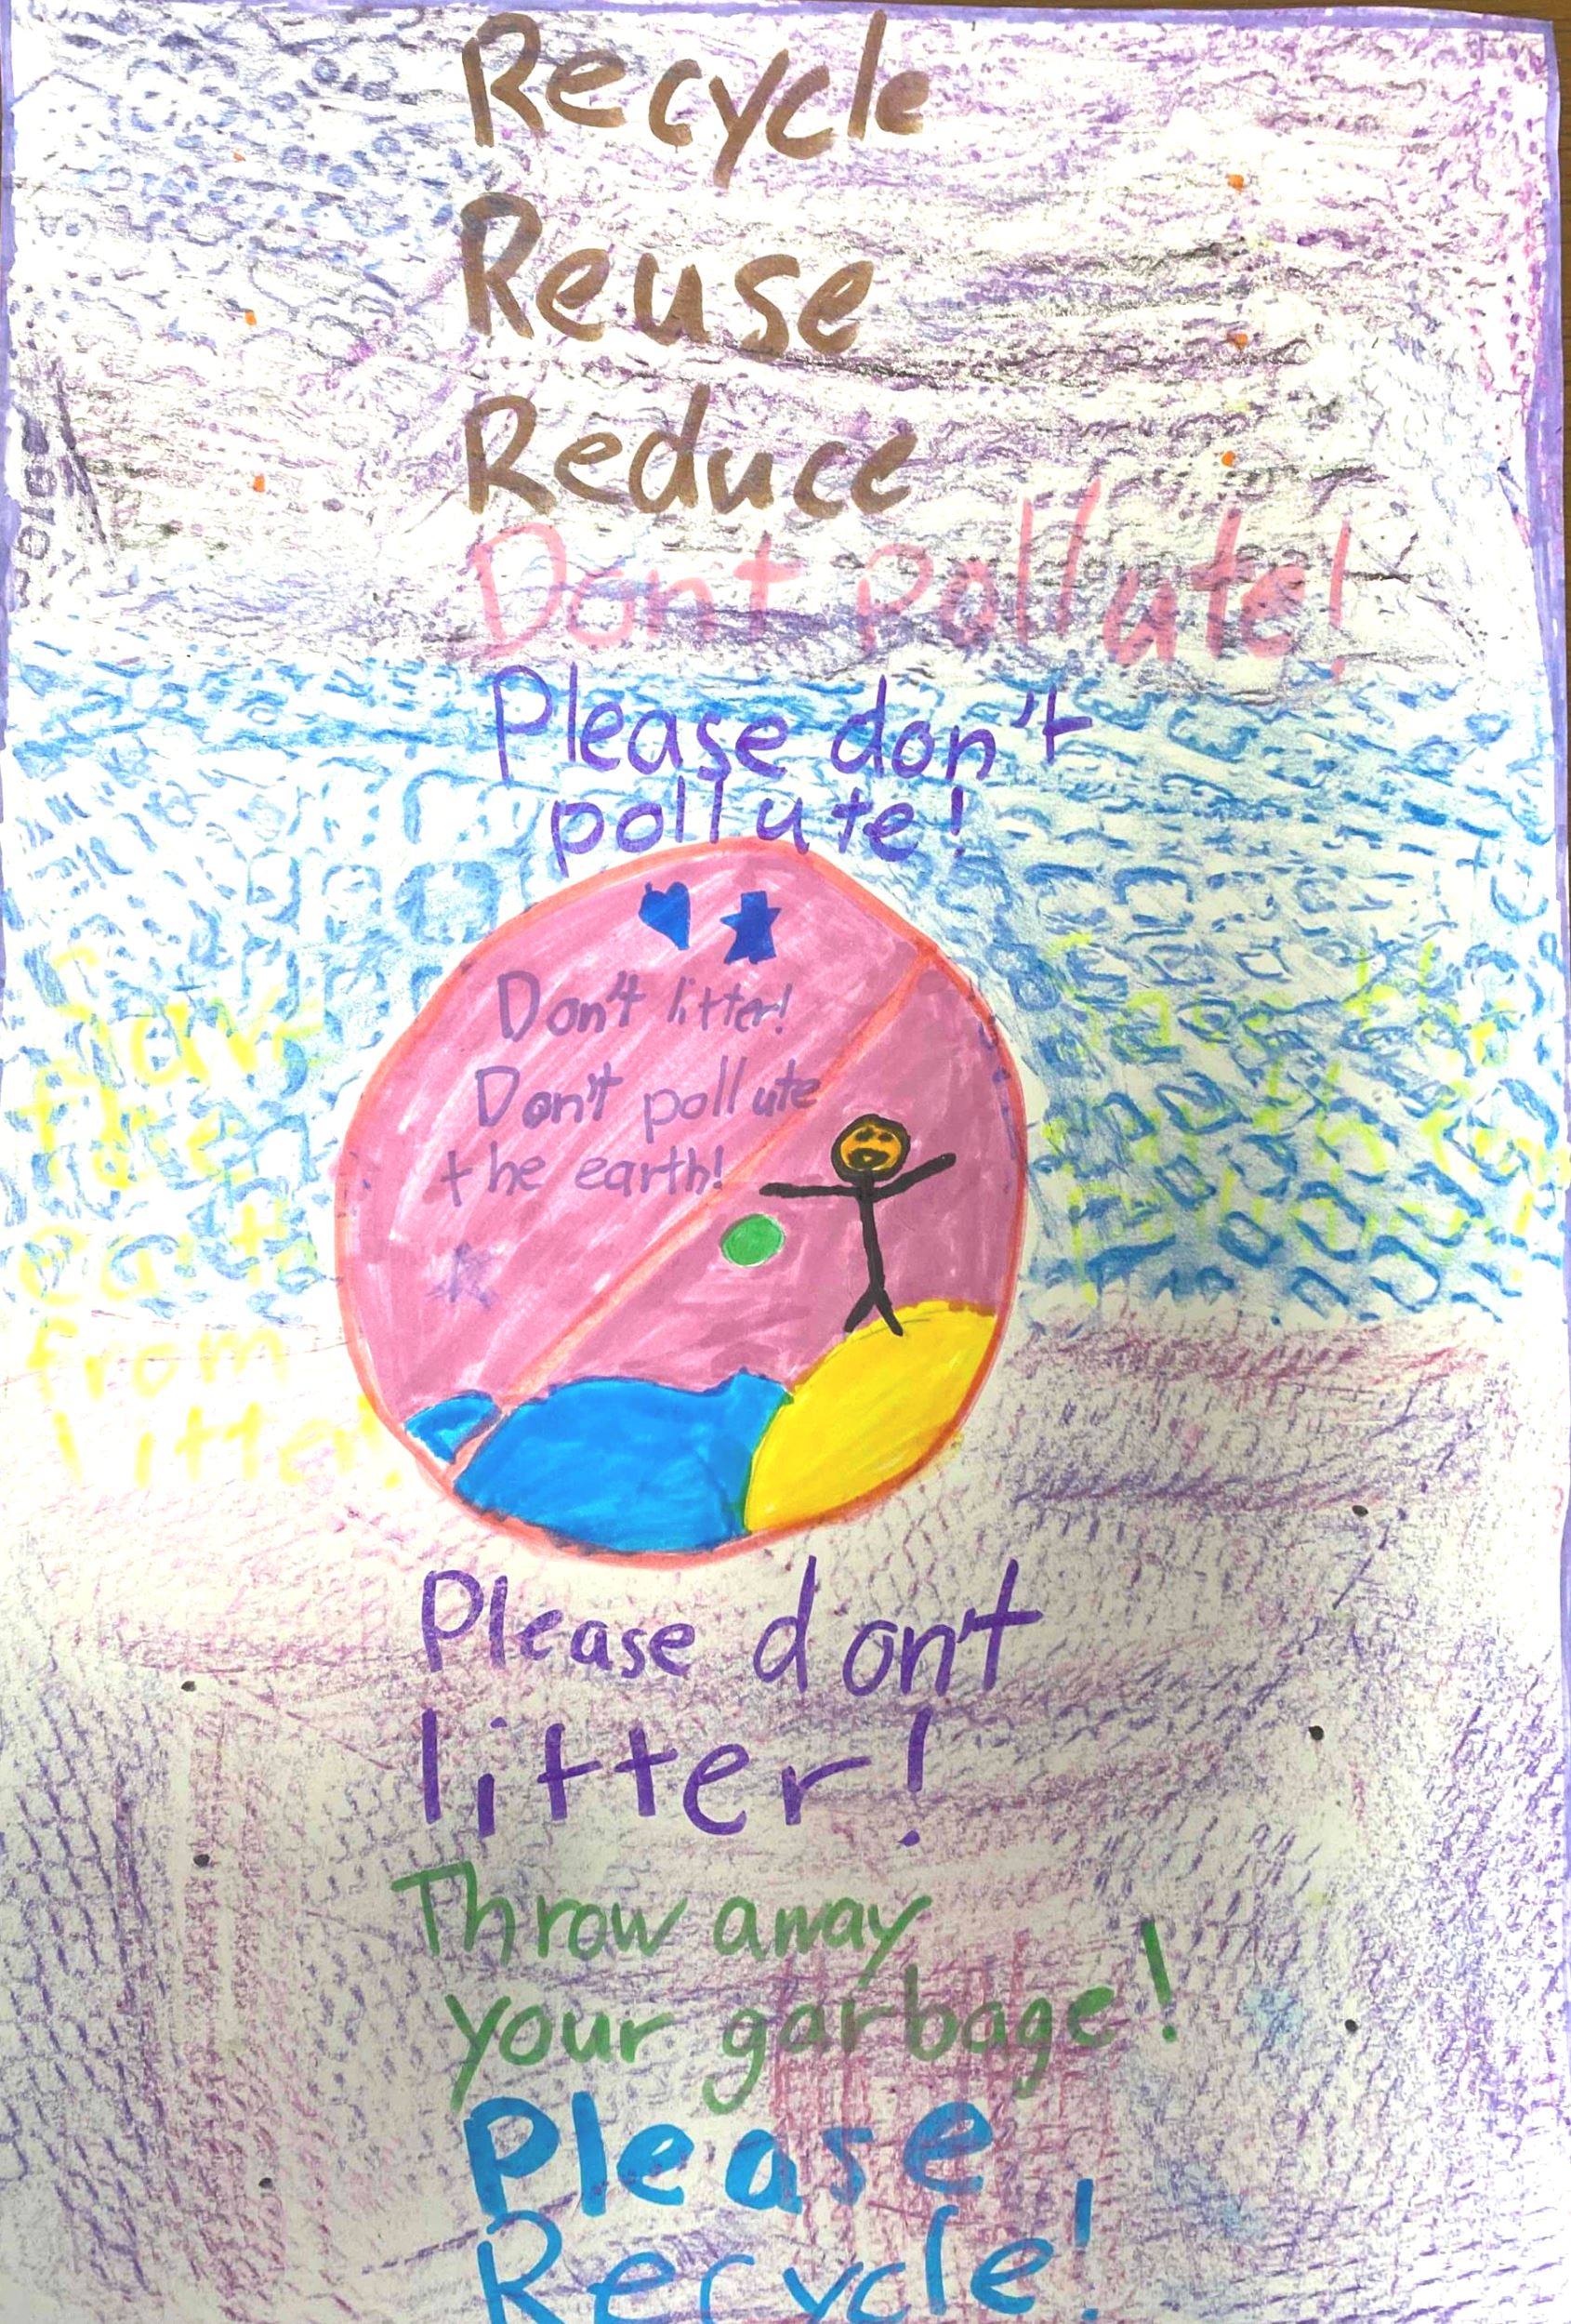 Recycle
Reuse
Reduce
Dont pollute!
Please don't
pollute!
Don't litter!
Don't pollute
the earth!
save
the
earth
from
litter!
Please don't
litter!
Throw away
your garbage!
Please
Recycle!